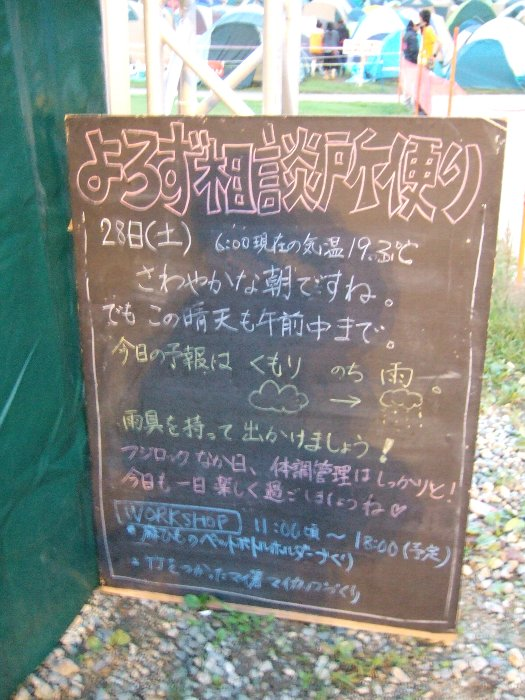 よろず相談所便り
28日(土) 6:00現在の気温19.3℃
さわやかな朝ですね。
でもこの晴天も午前中まで。
今日の予報は くもり のち 雨。
→
雨具を持って出かけましょう!
フジロックなか日、体調管理はしっかりと!
今日も一日楽しく過ごしましょうね♡
WORKSHOP 11:00頃～18:00(予定)
・麻ひものペットボトルホルダーづくり
・竹をつかったマイ箸マイカップづくり